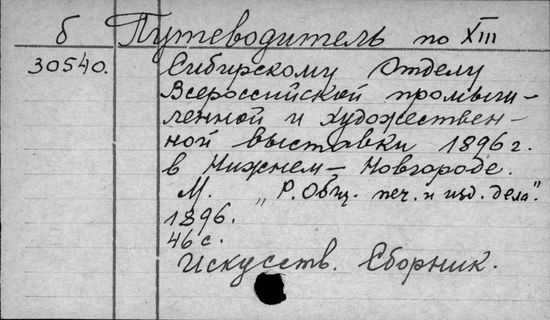 б Путеводитель по XIII
30540. Сибирскому Отделу
Всероссийской промыш-
ленной и художествен-
ной выставки 1896 г.
в Нижнем-Новгороде.
М. „Р. Общ. печ. и изд. дела".
1896.
46 с.
Искусств. Сборник.